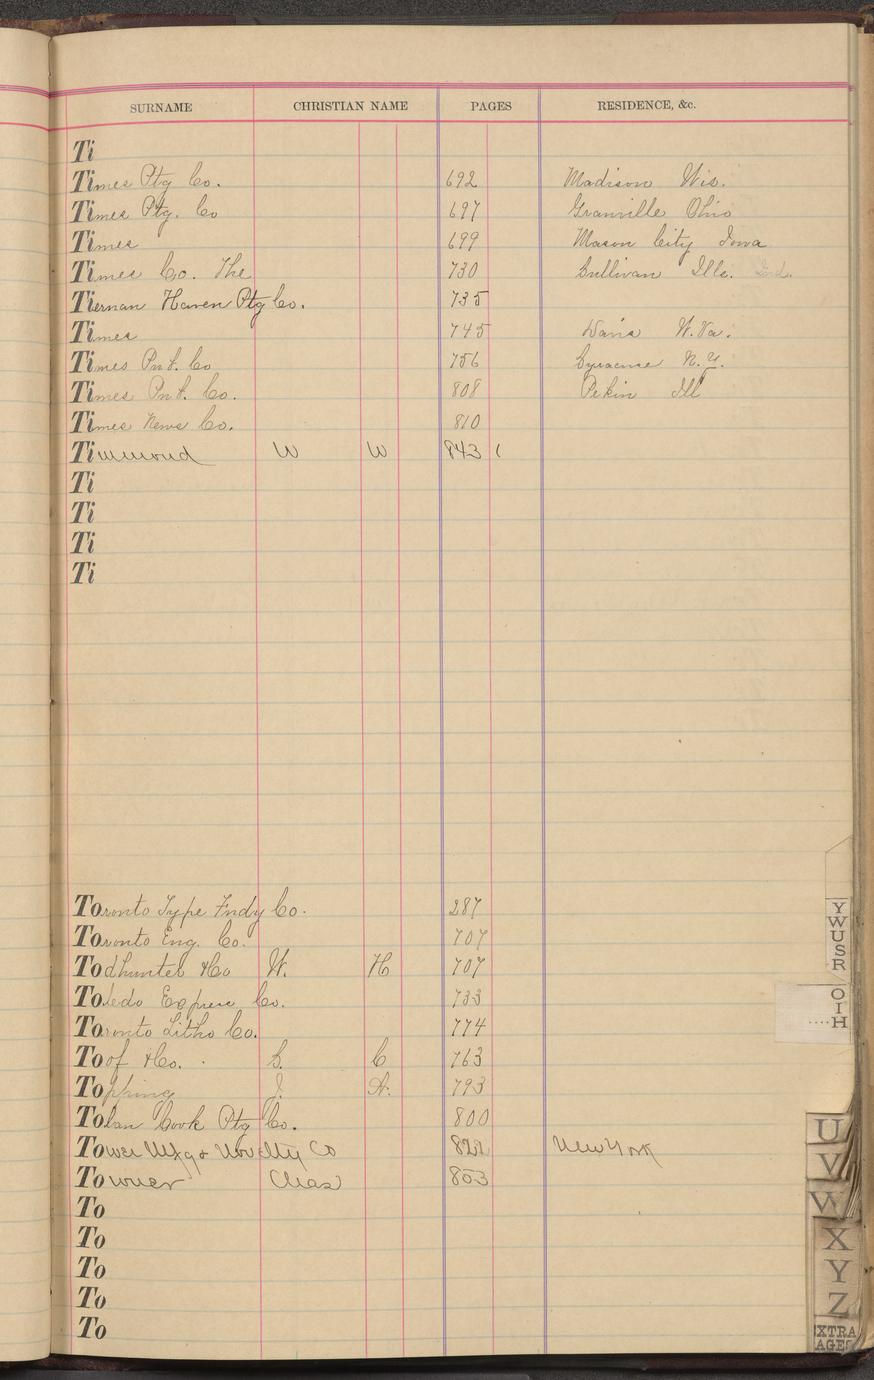 SURNAME CHRISTIAN NAME PAGES RESIDENCE, &c.
Ti
Times Ptg Co. 692 Madison Wis.
Times Ptg. Co 697 Granville Ohio
Times 699 Mason City Iowa
Times Co. The 730 Sullivan Ills. Ind.
Tiernan Haven Ptg Co. 735
Times 745 Davis W. Va.
Times Pnt. Co 756 Syracuse N.Y.
Times Pnt. Co. 808 Pekin Ill
Times News Co. 810
Timmond W W 843 1
Ti
Ti
Ti
Ti
Toronto Type Fndy Co. 287
Toronto Eng. Co. 707
Todhunter & Co W. H 707
Toledo Express Co. 733
Toronto Litho Co. 774
Toof & Co. S. C 763
Topping J. A. 793
Tolan Cook Ptg Co. 800
Tower Mfg & Novelty Co 822 New York
Towner Chas 853
To
To
To
To
To
Y
W
U
S
R
O
I
H
U
V
W
X
Y
Z
EXTRA
PAGES